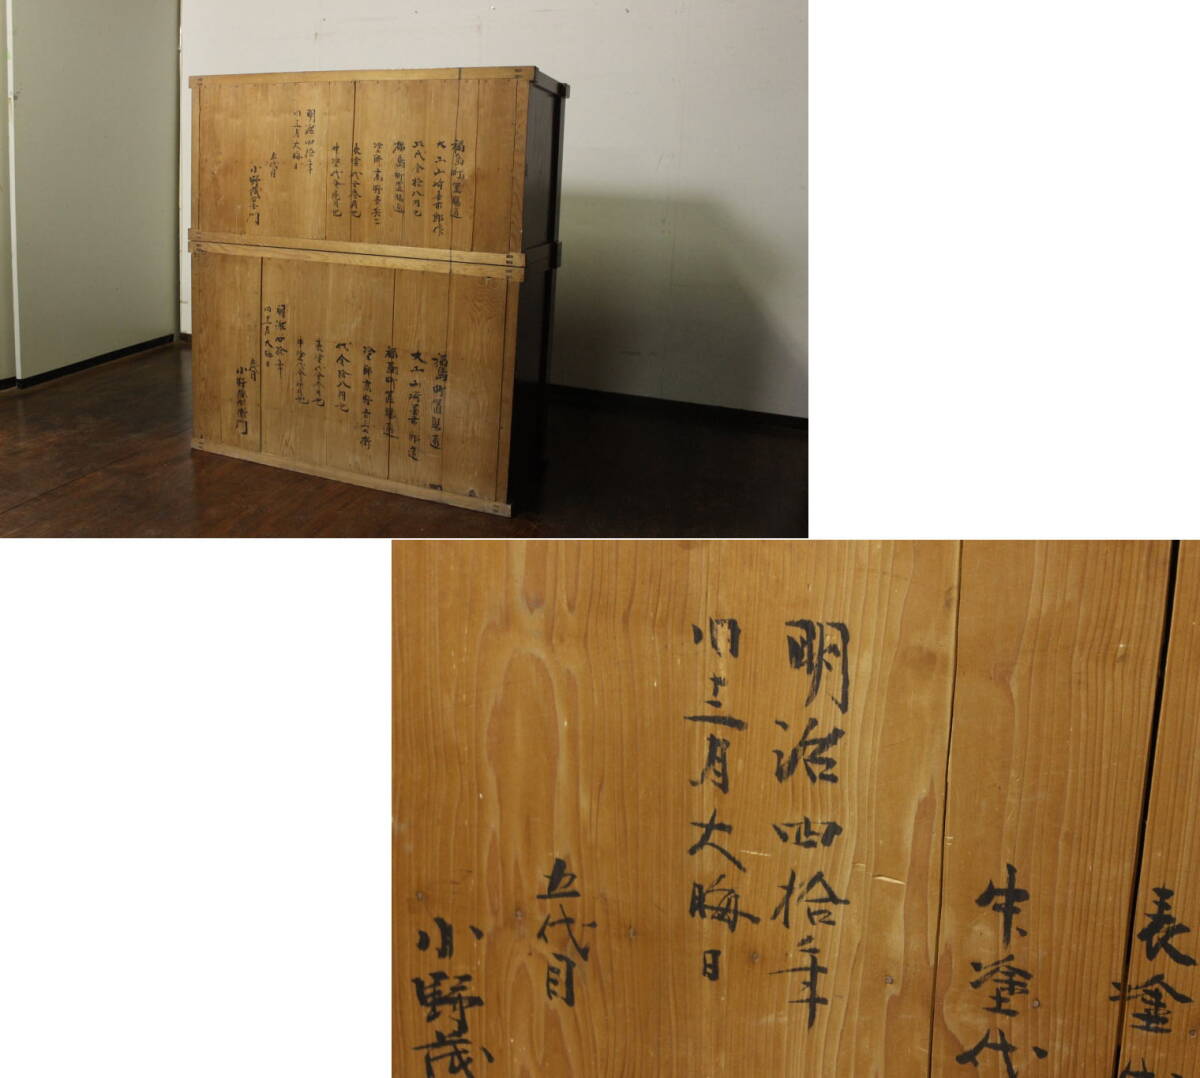 福島町置賜通
大工山崎喜市郎作
代金拾八円也
福島町置賜通
塗師高野喜兵衛
表塗代金参円也
中塗代金
明治四拾年
旧十二月大晦日
五代目
小野茂
福島町置賜通
大工山崎喜市郎造
福島町置賜通
塗師高野
代金拾八円也
表塗代金
中塗代金
明治四拾年
旧十二月大晦日
五代目
小野茂
表塗
中塗代
明治四拾年
旧十二月大晦日
五代目
小野茂